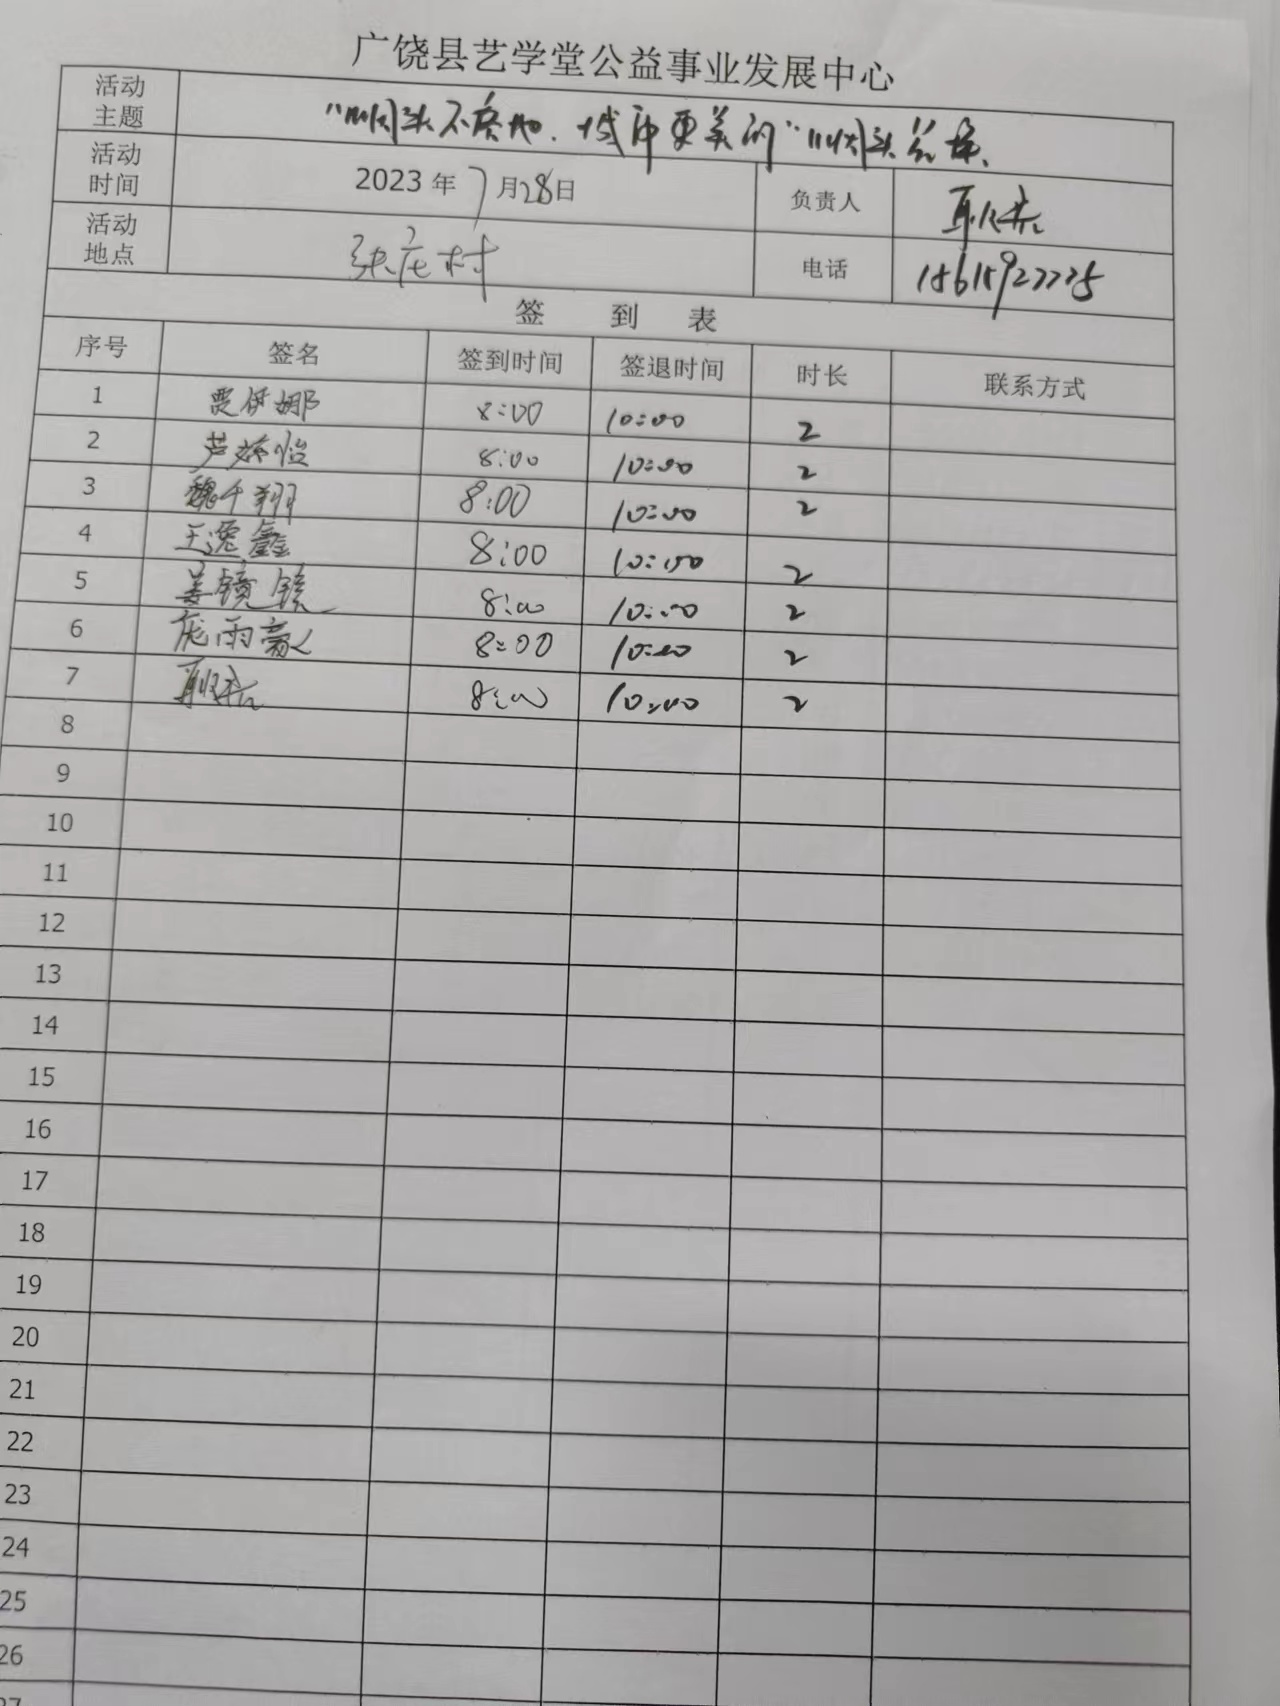 广饶县艺学堂公益事业发展中心
活动主题 "烟头不落地,城市更美丽"烟头兑换
活动时间 2023年7月28日 负责人
活动地点 张庄村 电话
签 到 表
序号 签名 签到时间 签退时间 时长 联系方式
1 贾伊娜 8:00 10:00 2
2 芦 怡 8:00 10:00 2
3 魏千翔 8:00 10:00 2
4 王逸鑫 8:00 10:00 2
5 姜镜 8:00 10:00 2
6 庞雨 8:00 10:00 2
7 8:00 10:00 2
8
9
10
11
12
13
14
15
16
17
18
19
20
21
22
23
24
25
26
27